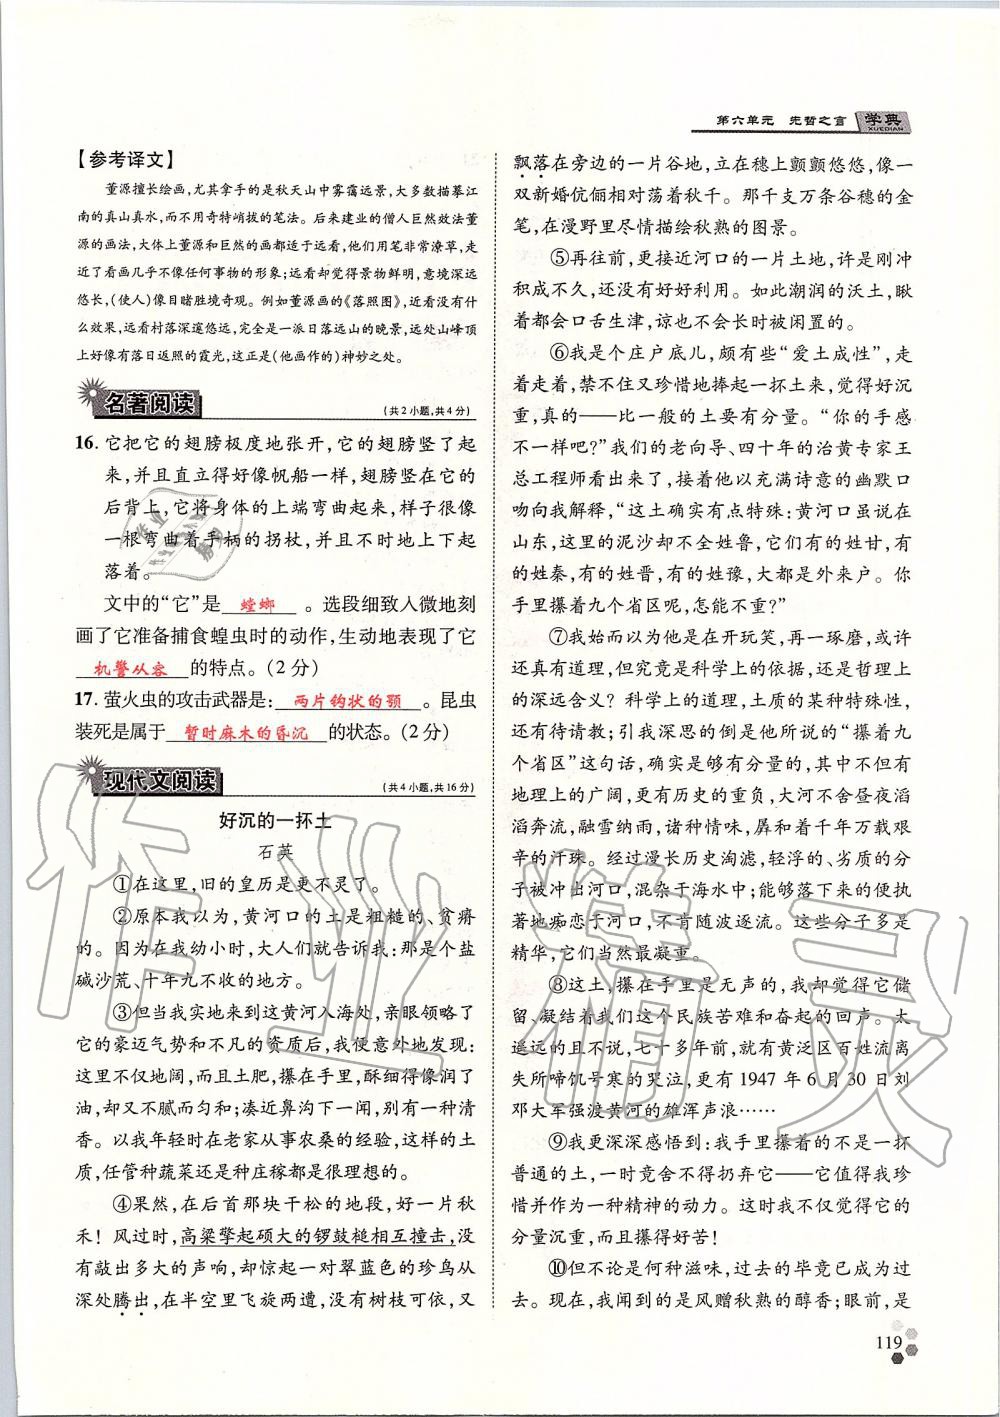 第六单元 先哲之言 学典
XUEDIAN
【参考译文】
董源擅长绘画,尤其拿手的是秋天山中雾霭远景,大多数描摹江
南的真山真水,而不用奇特峭拔的笔法。后来建业的僧人巨然效法董
源的画法,大体上董源和巨然的画都适于远看,他们用笔非常潦草,走
近了看画几乎不像任何事物的形象;远看却觉得景物鲜明,意境深远
悠长,(使人)像目睹胜境奇观。例如董源画的《落照图》,近看没有什
么效果,远看村落深邃悠远,完全是一派日落远山的晚景,远处山峰顶
上好像有落日返照的霞光,这正是(他画作的)神妙之处。
名著阅读 (共2小题,共4分)
16. 它把它的翅膀极度地张开,它的翅膀竖了起
来,并且直立得好像帆船一样,翅膀竖在它的
后背上,它将身体的上端弯曲起来,样子很像
一根弯曲着手柄的拐杖,并且不时地上下起
落着。
文中的“它”是 螳螂 。选段细致入微地刻
画了它准备捕食蝗虫时的动作,生动地表现了它
机警从容 的特点。(2分)
17. 萤火虫的攻击武器是: 两片钩状的颚 。昆虫
装死是属于 暂时麻木的昏沉 的状态。(2分)
现代文阅读 (共4小题,共16分)
好沉的一抔土
石英
①在这里,旧的皇历是更不灵了。
②原本我以为,黄河口的土是粗糙的、贫瘠
的。因为在我幼小时,大人们就告诉我:那是个盐
碱沙荒、十年九不收的地方。
③但当我实地来到这黄河入海处,亲眼领略了
它的豪迈气势和不凡的资质后,我便意外地发现:
这里不仅地阔,而且土肥,攥在手里,酥细得像润了
油,却又不腻而匀和;凑近鼻沟下一闻,别有一种清
香。以我年轻时在老家从事农桑的经验,这样的土
质,任管种蔬菜还是种庄稼都是很理想的。
④果然,在后首那块干松的地段,好一片秋
禾!风过时,高粱擎起硕大的锣鼓槌相互撞击,没
有敲出多大的声响,却惊起一对翠蓝色的珍鸟从
深处腾出,在半空里飞旋两遭,没有树枝可依,又
飘落在旁边的一片谷地,立在穗上颤颤悠悠,像一
双新婚伉俪相对荡着秋千。那千支万条谷穗的金
笔,在漫野里尽情描绘秋熟的图景。
⑤再往前,更接近河口的一片土地,许是刚冲
积成不久,还没有好好利用。如此潮润的沃土,瞅
着都会口舌生津,谅也不会长时被闲置的。
⑥我是个庄户底儿,颇有些“爱土成性”,走
着走着,禁不住又珍惜地捧起一抔来,觉得好沉
重,真的——比一般的土要有分量。“你的手感
不一样吧?”我们的老向导、四十年的治黄专家王
总工程师看出来了,他以充满诗意的幽默口
吻向我解释,“这土确实有点特殊:黄河口虽说在
山东,这里的泥沙却不全姓鲁,它们有的姓甘,有
的姓秦,有的姓晋,有的姓豫,大都是外来户。你
手里攥着九个省区呢,怎能不重?”
⑦我始而以为他是在开玩笑,再一琢磨,或许
还真有道理,但究竟是科学上的依据,还是哲理上
的深远含义?科学上的道理,土质的某种特殊性,
有待请教;引我深思的倒是他所说的“攥着九
个省区”这句话,确确实实够有分量的,其中不但有
地理上的广阔,更有历史的重负,大河不舍昼夜滔
滔奔流,融雪纳雨,诸种情味,羼和着千年万载艰
辛的汗珠。经过漫长历史淘滤,轻浮的、劣质的分
子被冲出河口,混杂于海水中;能够落下来的便执
著地痴恋于河口,不肯随波逐流。这些分子多是
精华,它们当然最凝重。
⑧这土,攥在手里是无声的,我却觉得它储
留、凝结着我们这个民族苦难和奋起的回声。太
遥远的且不说,七十多年前,就有黄泛区百姓流离
失所啼饥号寒的哭泣,更有1947年6月30日刘
邓大军强渡黄河的雄浑声浪……
⑨我更深深感悟到:我手里攥着的不是一抔
普通的土,一时竟舍不得扔弃它——它值得我珍
惜并作为一种精神的动力。这时我不仅觉得它的
分量沉重,而且攥得好苦!
⑩但不论是何种滋味,过去的毕竟已成为过
去。现在,我闻到的是风赠秋熟的醇香;眼前,是
119
作业精灵